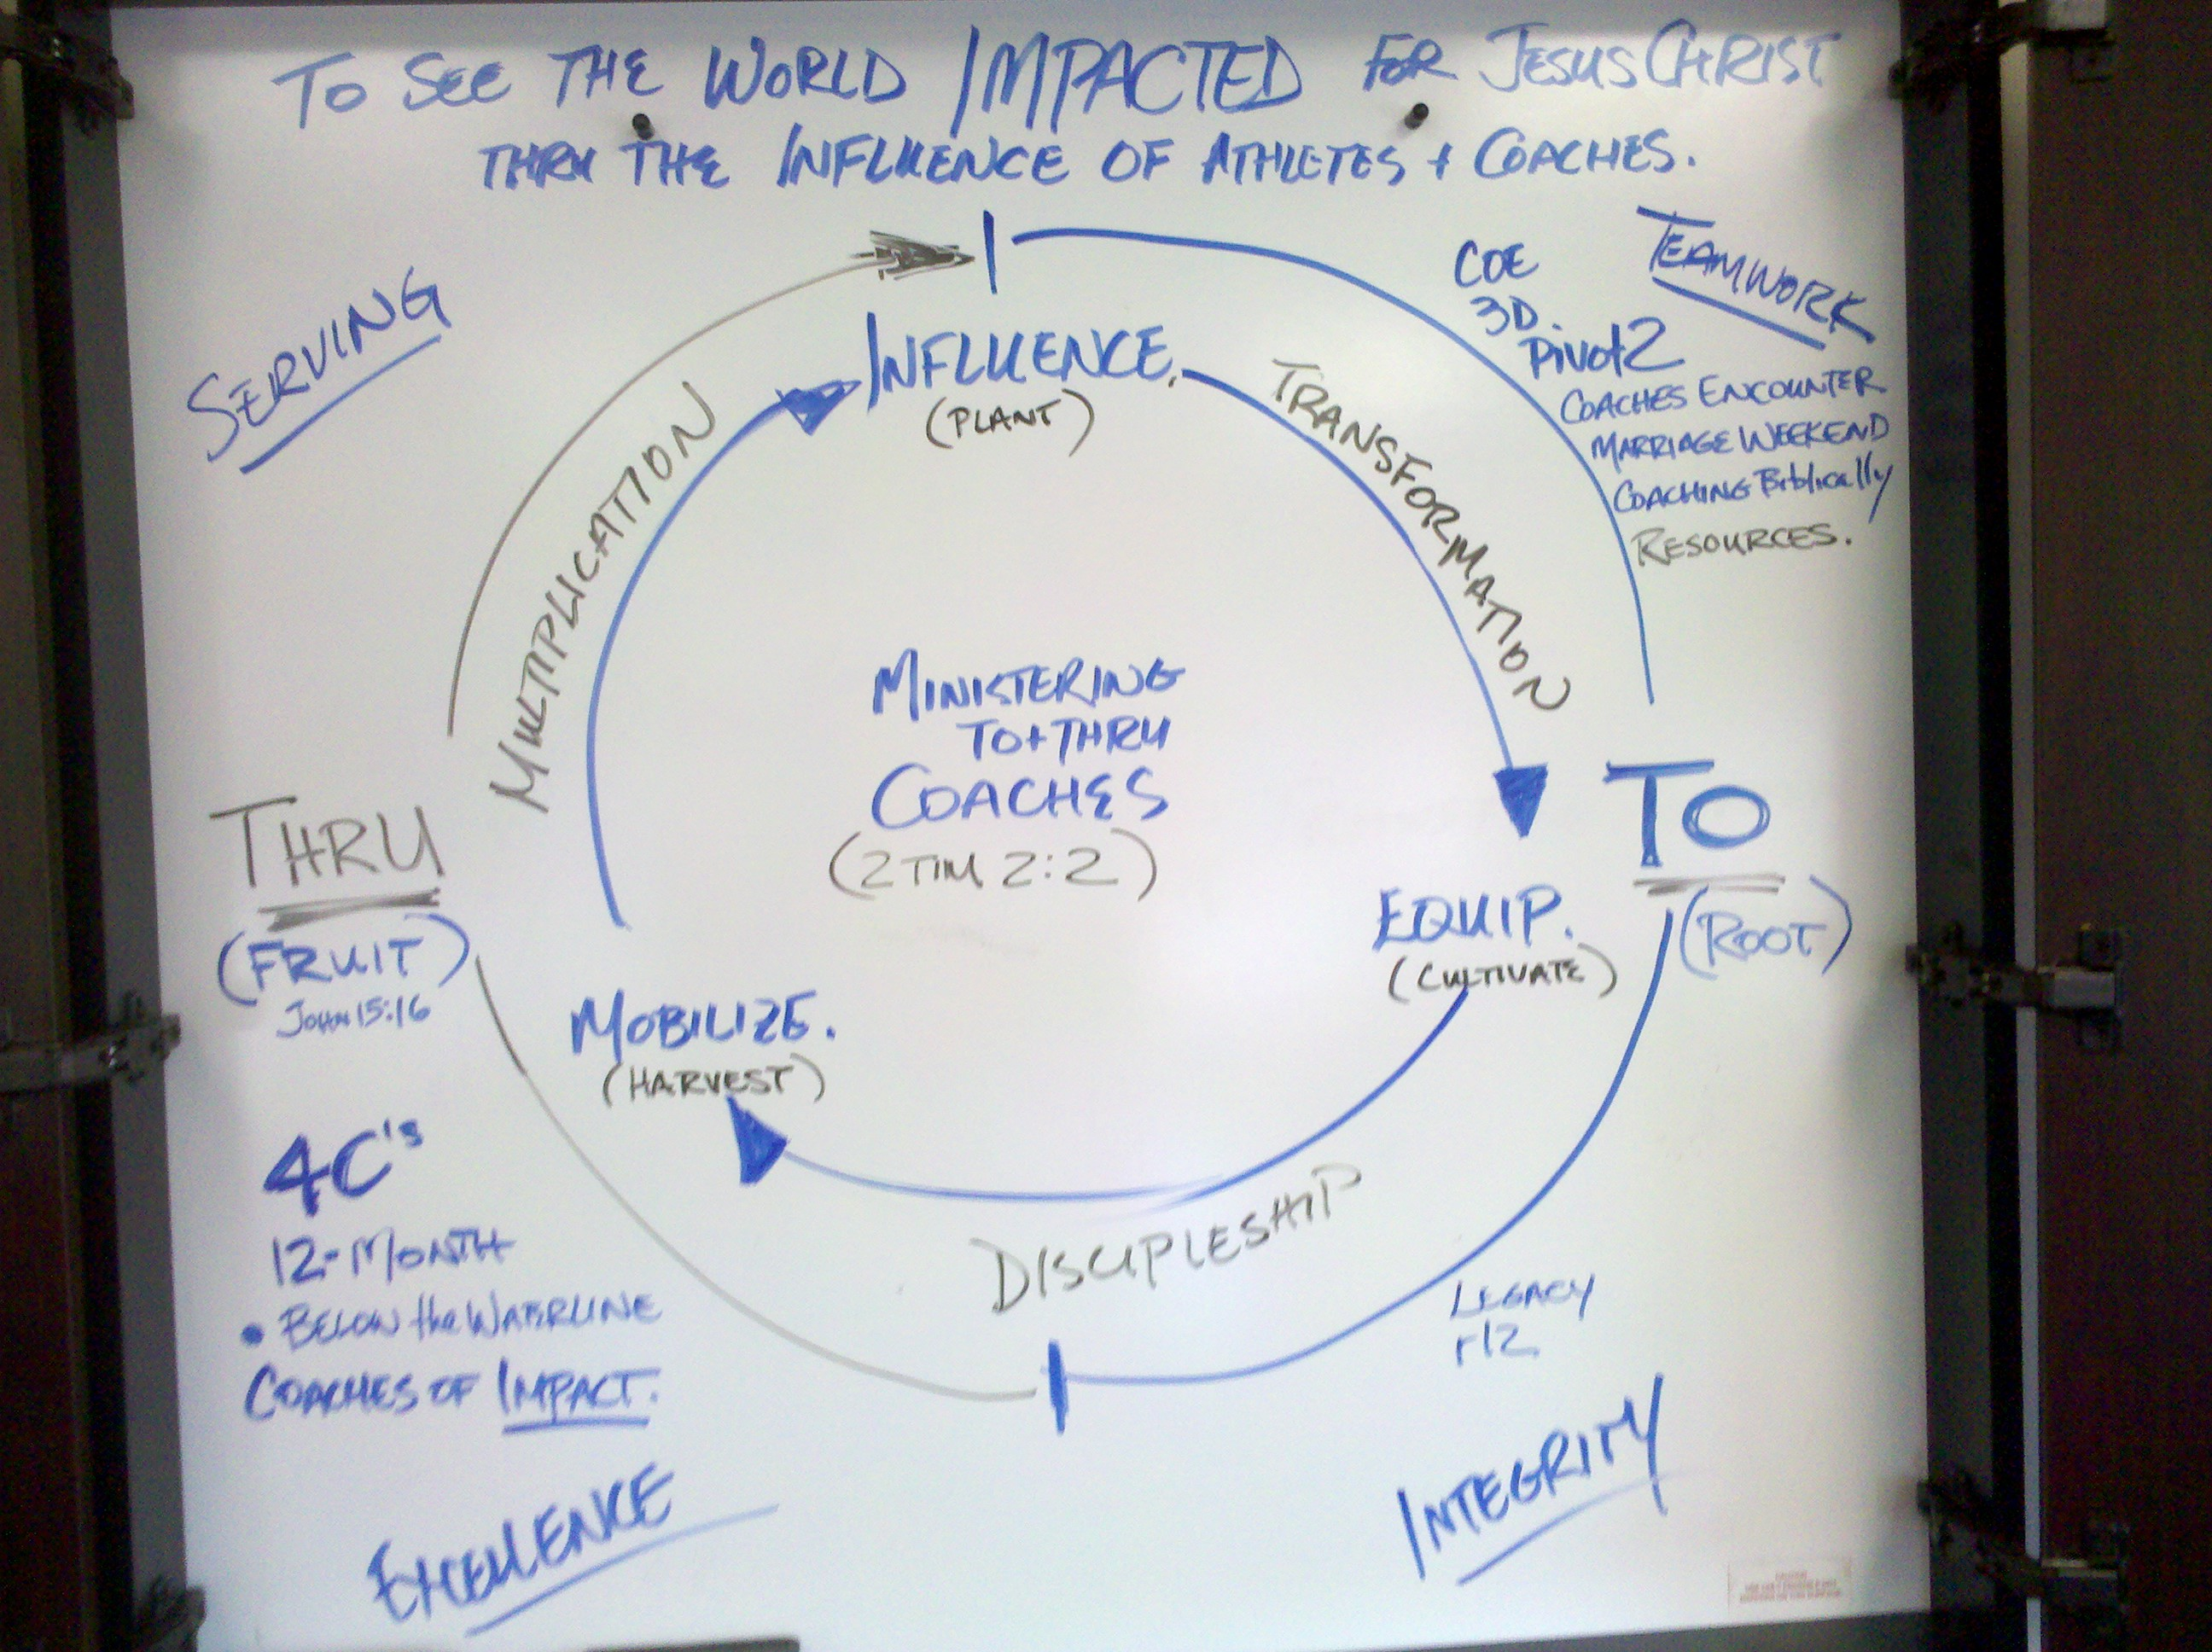 To See THE WORLD IMPACTED FOR JESUS CHRIST
THRU THE INFLUENCE OF ATHLETES + COACHES.
SERVING
TEAMWORK
COE
3D.
Pivot2
COACHES ENCOUNTER
MARRIAGE WEEKEND
COACHING Biblically
RESOURCES.
INFLUENCE.
(PLANT)
TRANSFORMATION
MULTIPLICATION
MINISTERING
TO + THRU
COACHES
(2 TIM 2:2)
TO
(ROOT)
EQUIP.
(CULTIVATE)
THRU
(FRUIT)
JOHN 15:16
MOBILIZE.
(HARVEST)
DISCIPLESHIP
4C's
12-MONTH
• BELOW the WATERLINE
COACHES OF IMPACT.
LEGACY
r12
EXCELLENCE
INTEGRITY